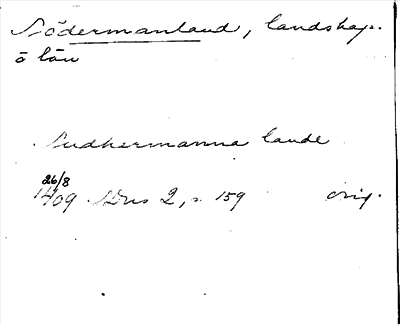 Södermanland, landskap.
o län
Sudhermanna lande
26/8
1409 SDns 2, s. 159 orig.